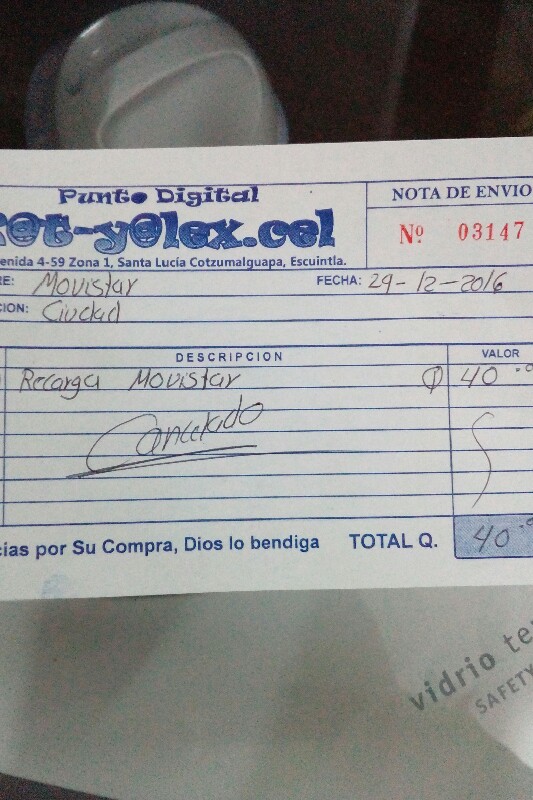 Punto Digital
NOTA DE ENVIO
@t-y@lex.cel
Nº 03147
enida 4-59 Zona 1, Santa Lucía Cotzumalguapa, Escuintla.
RE: Movistar FECHA: 29-12-2016
CION: Ciudad
DESCRIPCION VALOR
Recarga Movistar Q 40.0
Cancelado
cias por Su Compra, Dios lo bendiga TOTAL Q. 40.0
vidrio te
SAFETY